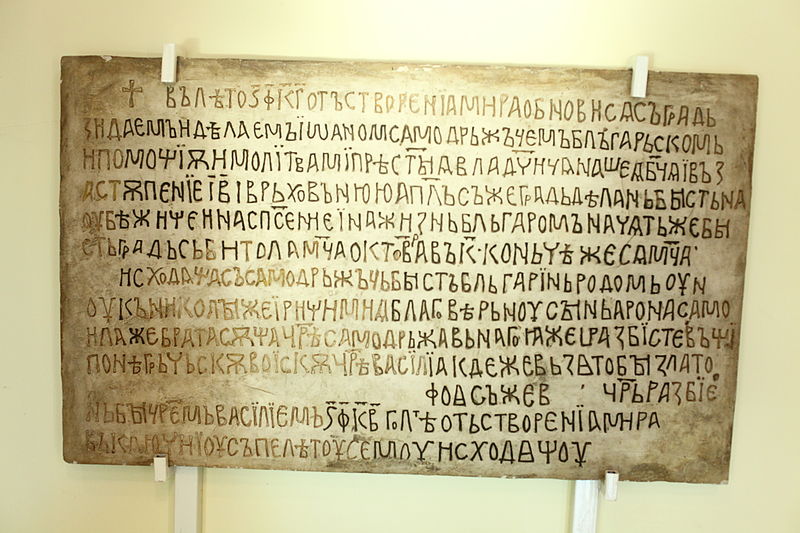 † ВЪ ЛѢТО Ѕ҃Ф҃К҃Г҃ ОТЪ СТВОРЕНІА МИРА ОБНОВИ СА СЪ ГРАДЬ
ЗИДАЕМЪ И ДѢЛАЕМЪ Ї ѠАНОМ САМОДРЬЖЪЧЕМЪ БЛЪГАРЬСКОМЬ
И ПОМОЩІѪ И МОЛІТВАМІ ПРѢСТ҃ЫА ВЛАДЧ҃ИЧА НАШЕА Б҃ЧА Ї ВЪЗ
АСТѪПЕНІЕ І҃В҃ І ВРЬХОВЪНЮЮ АПЛ҃Ъ СЪ ЖЕ ГРАДЬ ДѢЛАНЬ БЫСТЬ НА
ОУБѢЖИЩЕ И НА СПС҃ЕНИЕ Ї НА ЖИЗНЬ БЛЬГАРОМЪ НАЧАТЬ ЖЕ БЫ
СТЬ ГРАДЬ СЬ БИТОЛА М҃ЧА ОКТОВРА ВЪ К҃· КОНЬЧѢ ЖЕ СА М҃ЧА·
ИСХОДАЩА СЪ САМОДРЬЖЪЧЬ БЫСТЪ БЛЬГАРІНЬ РОДОМЬ ОУН
ОУКЪ НИКОЛЫ ЖЕ Ї РИЩИМИА БЛАГОВѢРЬНОУ СЫНЬ АРОНА САМО
ИЛА ЖЕ БРАТА СѪЩА Ч҃РѢ САМОДРЬЖАВЬНАГО ІАЖЕ І РАЗБІСТЕ ВЪ ЩІ
ПОНѢ ГРЬЧЬСКѪ ВОІСКѪ Ч҃РѢ ВАСІЛІА КДЕ ЖЕ ВЬЗѦТО БЫ ЗЛАТО
ФОѦ СЪЖЕВ Ч҃РЬ РАЗБІЕ
НЬ БЫ Ч҃РЕМЬ ВАСІЛІЕМЬ Ѕ҃Ф҃К҃В҃ ГО ЛТѢ ОТЬ СТВОРЕНІА МИРА
ВЬ КЛЮЧИ І ОУСЪПЕ ЛѢТОУ СЕМОУ ИСХОДѦЩОУ